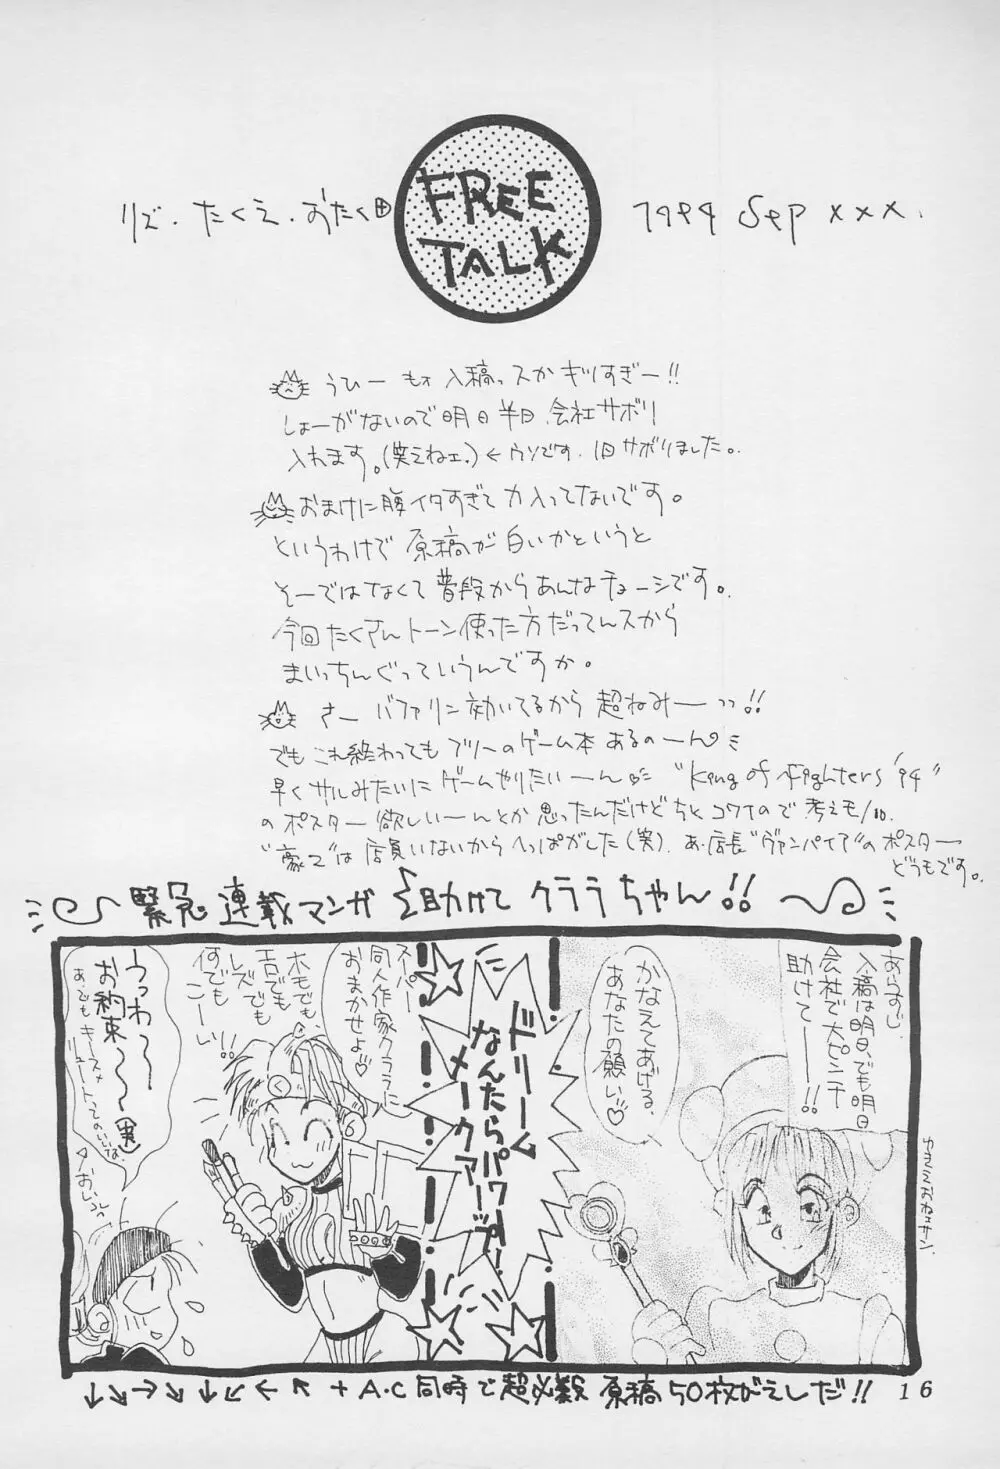 FREE
TALK
リズ・たくえ・おたく田
1994 Sep xxx.
うひー もォ入稿っスかギリすぎー!!
しょーがないので明日半日、会社サボリ
入れます。(笑えねェ.)←ウソです. 1日サボりました。
おまけに腹イタすぎて力入ってないです。
というわけで原稿が白いかというと
そーではなくて普段からあんなチョーシです。
今回たくさんトーン使った方だってんスから
まいっちんぐっていうんですか。
さー バファリン効いてるから超ねみーっっ!!
でもこれ終わってもフリーのゲーム本あるのーん
早くサルみたいにゲームやりたいーん "King of Fighters '94"
のポスター欲しいーんとか思ったんだけどちとコワイので考えモノ
"豪2"は店員いないからへっぱがした(笑). あ.店長"ヴァンパイア"のポスター
どうもです。
緊急連載マンガ 助けて クララちゃん!!
あらすじ
入稿は明日、でも明日
会社で大ピンチ
助けてー!!
かなえてあげる。
あなたの願い♡
ドリーム
なんたらパワー!
メークアーップ!
スーパー
同人作家クララに
おまかせよ♡
ホモでも、
エロでも
レズでも
何でも
こーい!!
うっわ〜
お約束〜〜
↓↘→↘↓↙←↖+A・C同時で超必殺 原稿50枚がえしだ!!
16